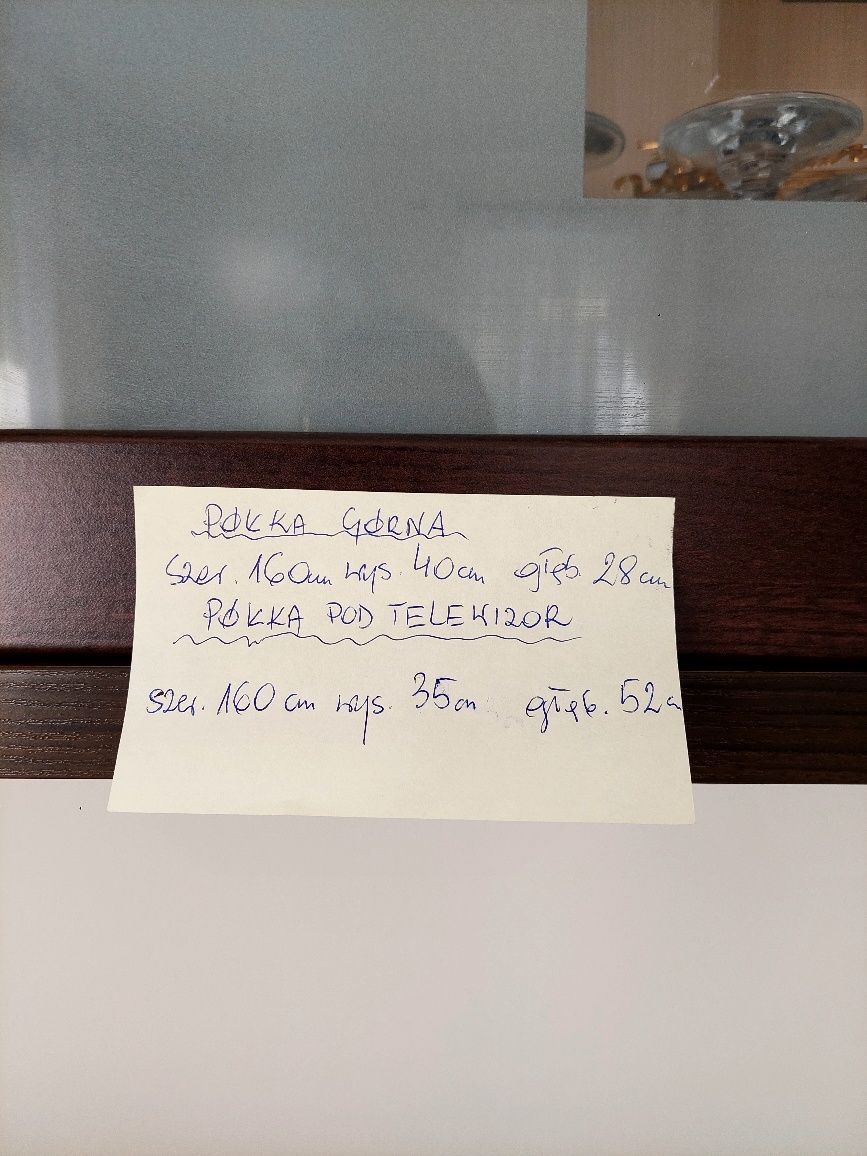 PÓŁKA GÓRNA
szer. 160cm wys. 40cm głęb. 28cm
PÓŁKA POD TELEWIZOR
szer. 160 cm wys. 35cm głęb. 52c